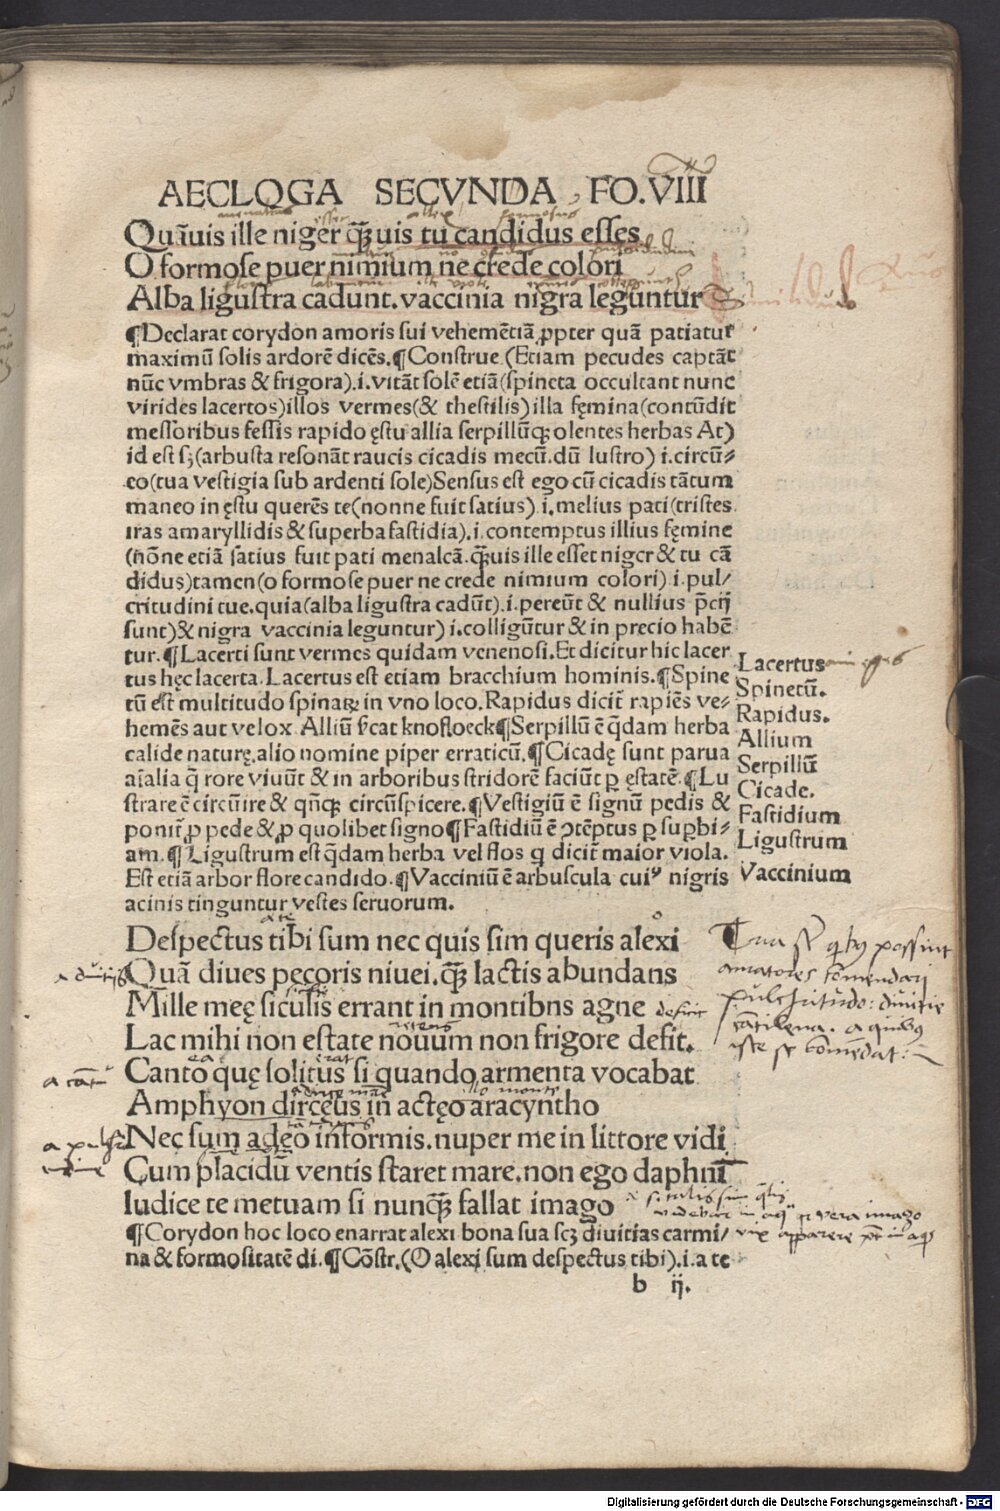 AECLOGA SECVNDA FO.VIII
Quãuis ille niger q̃uis tu candidus esses
O formose puer nimium ne crede colori
Alba ligustra cadunt.vaccinia nigra leguntur
¶Declarat corydon amoris sui vehemẽtiã ꝓpter quã patiatur
maximũ solis ardorẽ dicẽs.¶Construe.(Etiam pecudes captãt
nũc vmbras & frigora).i.vitãt solẽ etiã(spineta occultant nunc
virides lacertos)illos vermes(& thestilis)illa fęmina(contũdit
messoribus fessis rapido ęstu allia serpillũqꝫ olentes herbas At)
id est sꝫ(arbusta resonãt raucis cicadis mecũ.dũ lustro) i.circũ⸗
eo(tua vestigia sub ardenti sole)Sensus est ego cũ cicadis tãtum
maneo in ęstu querẽs te(nonne fuit satius).i.melius pati(tristes
iras amaryllidis & superba fastidia).i.contemptus illius fęmine
(nõne etiã satius fuit pati menalcã.q̃uis ille esset niger & tu cã
didus)tamen(o formose puer ne crede nimium colori).i.pul/
critudini tue.quia(alba ligustra cadũt).i.pereũt & nullius p̃cij
sunt)& nigra vaccinia leguntur) i.colligũtur & in precio habẽ
tur.¶Lacerti sunt vermes quidam venenosi.Et dicitur hic lacer
tus hęc lacerta.Lacertus est etiam bracchium hominis.¶Spine
tũ est multitudo spinaꝝ in vno loco.Rapidus dicit᷑ rapiẽs ve⸗
hemẽs aut velox.Alliũ v̾cat knofloeck¶Serpillũ ẽ q̃dam herba
calide naturę.alio nomine piper erraticũ.¶Cicadę sunt parua
aĩalia q̃ rore viuũt & in arboribus stridorẽ faciũt ꝑ ęstatẽ.¶Lu
strare ẽ circũire & qñqꝫ circũspicere.¶Vestigiũ ẽ signũ pedis &
ponit᷑ ꝓ pede & ꝓ quolibet signo¶Fastidiũ ẽ ↄtẽptus ꝑ suꝑbi⸗
am.¶Ligustrum est q̃dam herba vel flos q dicit᷑ maior viola.
Est etiã arbor flore candido.¶Vacciniũ ẽ arbuscula cuiꝰ nigris
acinis tinguntur vestes seruorum.
Lacertus
Spinetũ.
Rapidus.
Allium
Serpillũ
Cicade.
Fastidium
Ligustrum
Vaccinium
Despectus tibi sum nec quis sim queris alexi
Quã diues pecoris niuei.q̃ꝫ lactis abundans
Mille meę siculis errant in montibns agne
Lac mihi non estate nouum non frigore defit.
Canto quę solitus si quando armenta vocabat
Amphyon dirceus in actęo aracyntho
Nec sum adeo informis.nuper me in littore vidi
Cum placidũ ventis staret mare.non ego daphnĩ
Iudice te metuam si nunq̃ꝫ fallat imago
¶Corydon hoc loco enarrat alexi bona sua scꝫ diuitias carmi/
na & formositatẽ di.¶Cõstr.(O alexi sum despectus tibi).i.a te
b ij.
Digitalisierung gefördert durch die Deutsche Forschungsgemeinschaft - DFG